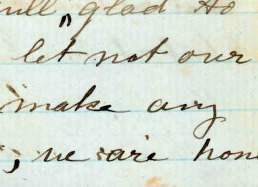 glad to
let not our
make any
; we are hom